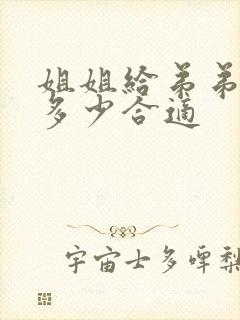 姐姐给弟弟
多少合适
宇宙士多啤梨